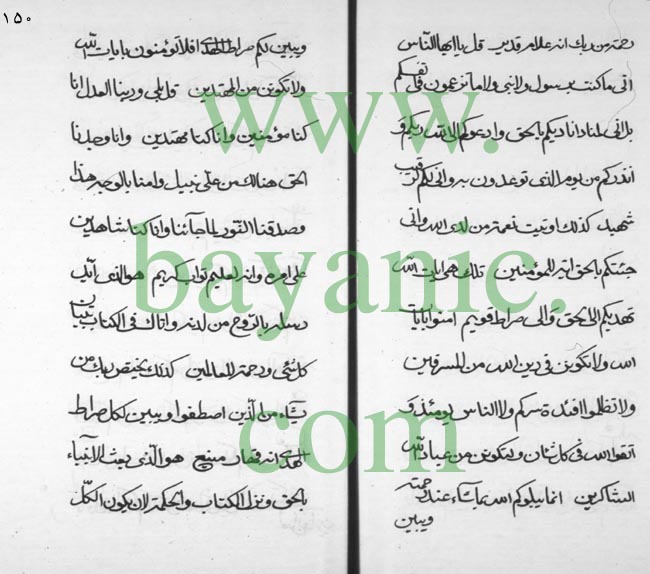 ١٥٠
رحمة من ربك انه علام قدير قل يا ايها الناس
اني ما كنت برسول ولا نبي ولا ما تزعمون في نفسكم
بل اني لمناد اناديكم بالحق وادعوكم الى الله ربكم و
انذركم من يوم الذي توعدون به واني لكم لرقيب
شهيد كذلك اوتيت نعمة من لدى الله واني
جئتكم بالحق للمؤمنين تلك هي ايات الله
تهديكم الى الحق والى صراط قويم امنوا بايات
الله ولا تكونن في دين الله من المسرفين
ولا تظلموا افئدة ولا الناس يومئذ و
اتقوا الله في كل شان ولتكونن من عباد الله
الشاكرين انما يبلوكم الله بما يشاء عنده رحمة
ويبين
ويبين لكم صراط الهدى افلا تؤمنون بايات الله
ولا تكونن من المهتدين قل بلى وربنا العدل انا
كنا مؤمنين وانا كنا مهتدين وانا وجدنا
الحق هنالك من علي نبيل وامنا بالوجه هذا
وصدقنا النور لما جآئنا وانا كنا شاهدين
على امره وانه لعليم تواب كريم هو الذي ايدك
بالروح من لدنه واتاك في الكتاب تبيان
كل شئ ورحمة للعالمين كذلك يختص ربك من
يشاء من الذين اصطفوا ويبين لكل صراط
الهدى انه منيع هو الذي بعث الانبياء
بالحق ونزل الكتاب والحكمة لان يكون الكل
www.
bayanic.
com